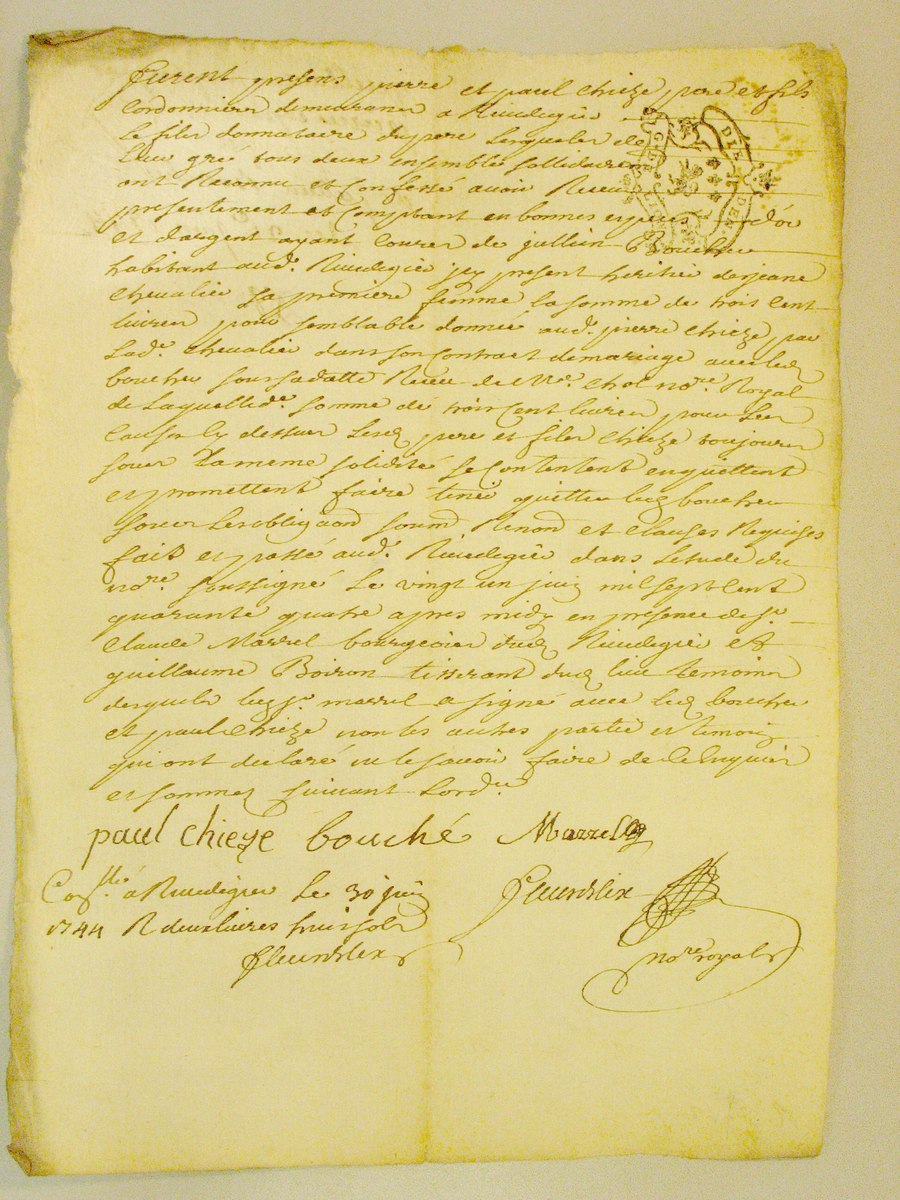 furent presens pierre et paul chieze pere et fils
Cordonnier demeurans a Rivedegier
Le filz donnataire du pere Lesquelz de
Leur gré tous deux ensemble sollidairem
ont Reconnu et Confessé avoir Receu
presentement et Comptant en bonnes especes dor
et dargent ayant Cours de jullien Boucher
habitant aud. Rivedegier icy present heritié de jeane
Chevalié sa premiere femme la somme de trois Cent
Livres pour semblable donnée aud. pierre chieze par
Lad. chevalié dans son Contract de mariage avec led
boucher sous sa datte Receu de Me. Chol nore. Royal
de Laquelle de. somme de trois Cent livres pour Les
Causes cy dessus Lesd pere et filz chieze toujours
sous La meme solidité se Contentent en quittent
et promettent faire tenir quitte led boucher
sous Les obligaons soumd Renond et Clauses Requises
fait et passé aud. Rivedegier dans Letude du
nore. soussigné Le vingt un juin mil sept Cent
quarante quatre apres midy en presence de sr.
Claude Marrel bourgeois dud Rivedegier et
guillaume Boiron tisserant dud lieu temoins
desquels led sr. marrel a signé avec led boucher
et paul chieze non les autres partie et temoin
qui ont declaré ne le savoir faire de ce Enquis
et sommez suivant Lord.
paul chieze bouché Marrel
Collé. á Rivedegier Le 30 juin
1744 R deux livres huit sols
fleurdelix
fleurdelix
nore royal